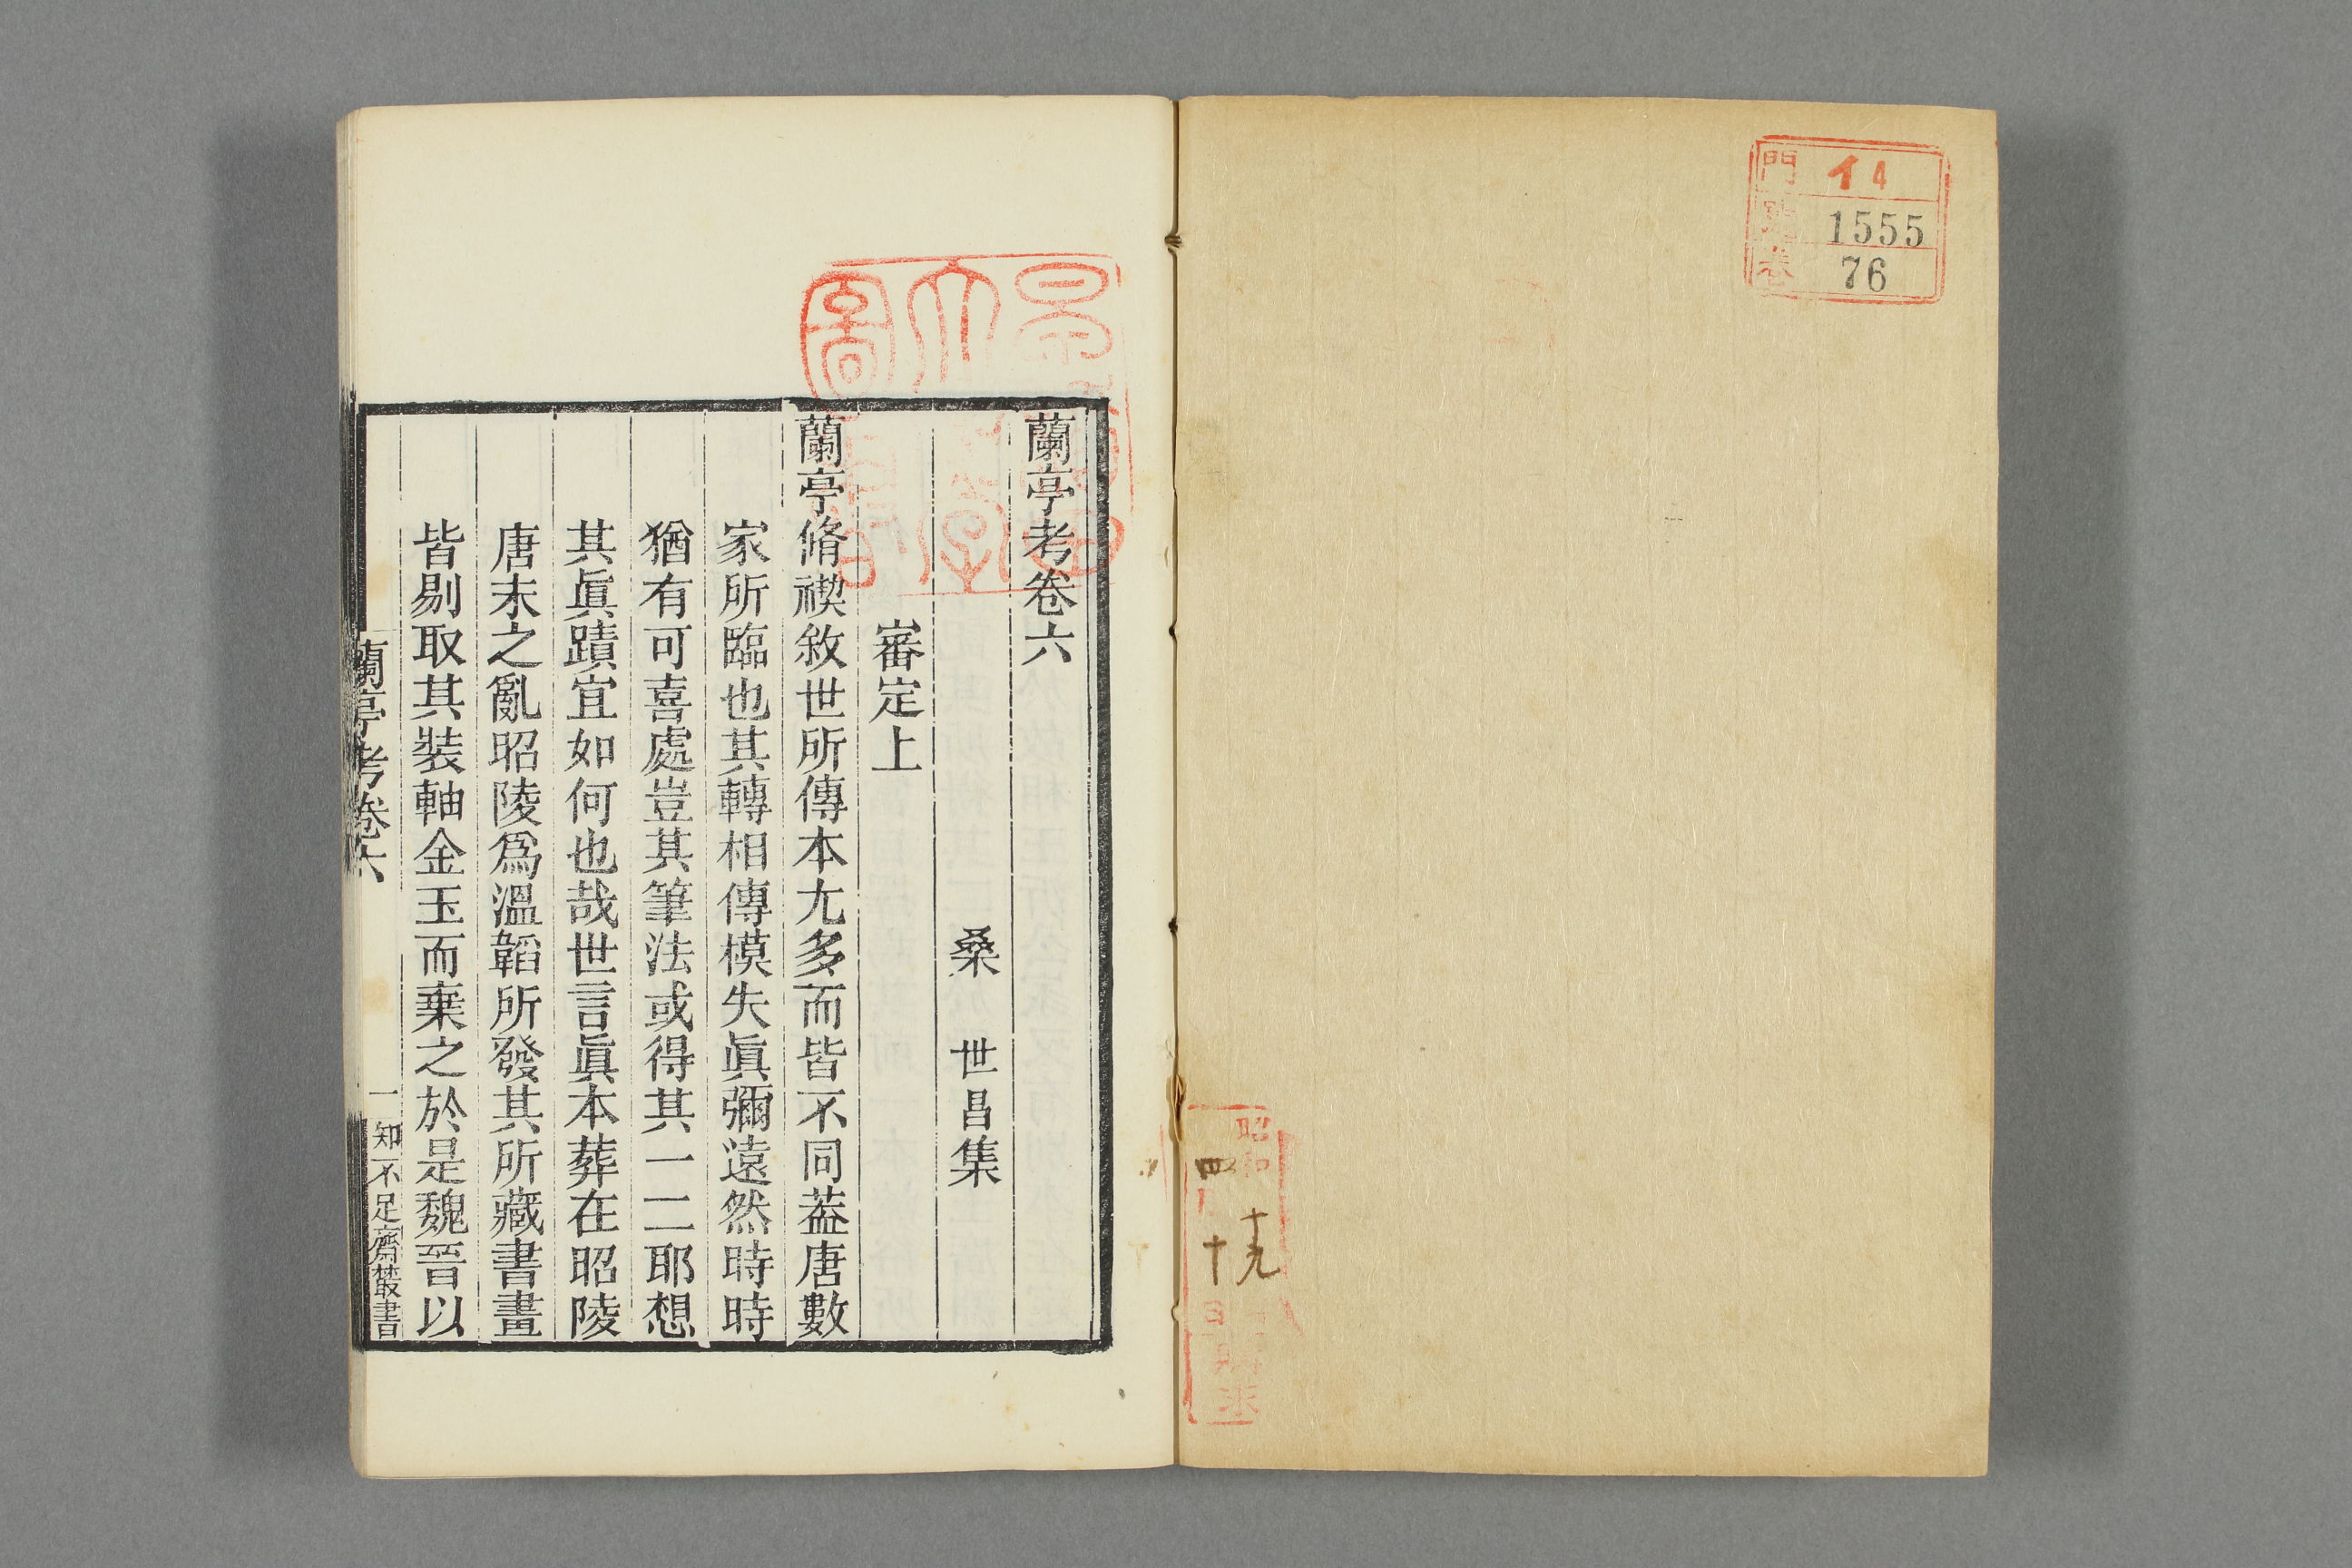 門 イ4
號 1555
卷 76
昭和
四 十九
十
日
蘭亭考卷六
桑 世昌集
審定上
蘭亭脩禊敘世所傳本尢多而皆不同葢唐數
家所臨也其轉相傳模失眞彌遠然時時
猶有可喜處豈其筆法或得其一二耶想
其眞蹟宜如何也哉世言眞本葬在昭陵
唐末之亂昭陵爲溫韜所發其所藏書畫
皆剔取其裝軸金玉而棄之於是魏晉以
蘭亭考卷六
一
知不足齋叢書